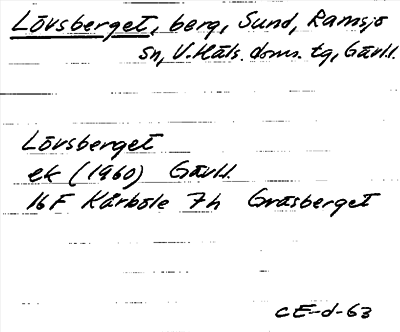 Lövsberget, berg, Sund, Ramsjö
sn, V. Häls. doms. tg, Gävll.
Lövsberget
ek (1960) Gävll.
16F Kårböle 7h Gräsberget
CE-d-63